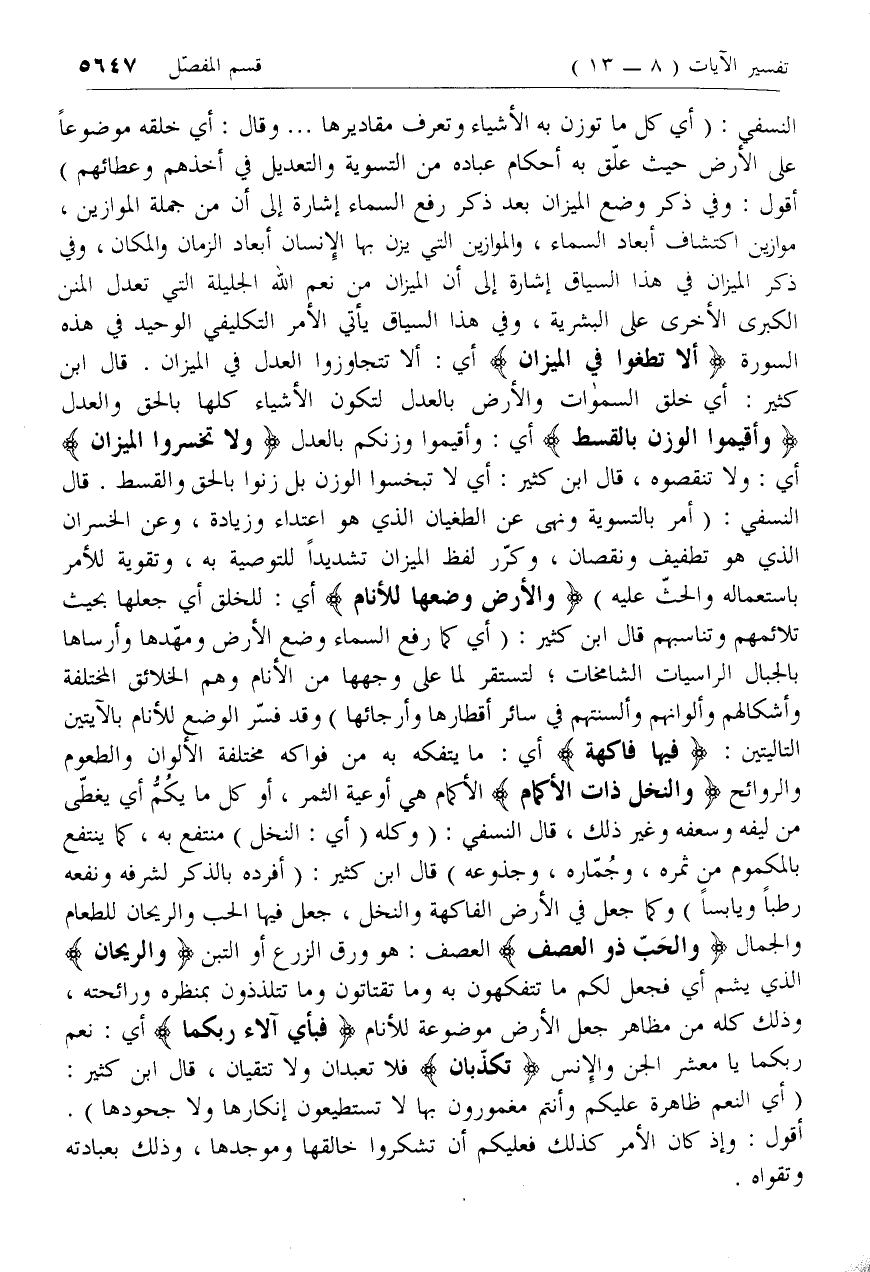 تفسير الآيات ( ٨ ــ ١٣ ) قسم المفصّل ٥٦٤٧
النسفي : ( أي كل ما توزن به الأشياء وتعرف مقاديرها ... وقال : أي خلقه موضوعاً
على الأرض حيث علّق به أحكام عباده من التسوية والتعديل في أخذهم وعطائهم )
أقول : وفي ذكر وضع الميزان بعد ذكر رفع السماء إشارة إلى أن من جملة الموازين ،
موازين اكتشاف أبعاد السماء ، والموازين التي يزن بها الإنسان أبعاد الزمان والمكان ، وفي
ذكر الميزان في هذا السياق إشارة إلى أن الميزان من نعم الله الجليلة التي تعدل المنن
الكبرى الأخرى على البشرية ، وفي هذا السياق يأتي الأمر التكليفي الوحيد في هذه
السورة ﴿ ألا تطغوا في الميزان ﴾ أي : ألا تتجاوزوا العدل في الميزان . قال ابن
كثير : أي خلق السموٰات والأرض بالعدل لتكون الأشياء كلها بالحق والعدل
﴿ وأقيموا الوزن بالقسط ﴾ أي : وأقيموا وزنكم بالعدل ﴿ ولا تخسروا الميزان ﴾
أي : ولا تنقصوه ، قال ابن كثير : أي لا تبخسوا الوزن بل زنوا بالحق والقسط . قال
النسفي : ( أمر بالتسوية ونهى عن الطغيان الذي هو اعتداء وزيادة ، وعن الخسران
الذي هو تطفيف ونقصان ، وكرّر لفظ الميزان تشديداً للتوصية به ، وتقوية للأمر
باستعماله والحثّ عليه ) ﴿ والأرض وضعها للأنام ﴾ أي : للخلق أي جعلها بحيث
تلائمهم وتناسبهم قال ابن كثير : ( أي كما رفع السماء وضع الأرض ومهّدها وأرساها
بالجبال الراسيات الشامخات ؛ لتستقر لما على وجهها من الأنام وهم الخلائق المختلفة
وأشكالهم وألوانهم وألسنتهم في سائر أقطارها وأرجائها ) وقد فسّر الوضع للأنام بالآيتين
التاليتين : ﴿ فيها فاكهة ﴾ أي : ما يتفكه به من فواكه مختلفة الألوان والطعوم
والروائح ﴿ والنخل ذات الأكمام ﴾ الأكمام هي أوعية الثمر ، أو كل ما يكُمُّ أي يغطّى
من ليفه وسعفه وغير ذلك ، قال النسفي : ( وكله ( أي : النخل ) منتفع به ، كما ينتفع
بالمكموم من ثمره ، وجُمّاره ، وجذوعه ) قال ابن كثير : ( أفرده بالذكر لشرفه ونفعه
رطباً ويابساً ) وكما جعل في الأرض الفاكهة والنخل ، جعل فيها الحب والريحان للطعام
والجمال ﴿ والحَبّ ذو العصف ﴾ العصف : هو ورق الزرع أو التبن ﴿ والريحان ﴾
الذي يشم أي فجعل لكم ما تتفكهون به وما تقتاتون وما تتلذذون بمنظره ورائحته ،
وذلك كله من مظاهر جعل الأرض موضوعة للأنام ﴿ فبأي آلاء ربكما ﴾ أي : نعم
ربكما يا معشر الجن والإنس ﴿ تكذّبان ﴾ فلا تعبدان ولا تتقيان ، قال ابن كثير :
( أي النعم ظاهرة عليكم وأنتم مغمورون بها لا تستطيعون إنكارها ولا جحودها ) .
أقول : وإذ كان الأمر كذلك فعليكم أن تشكروا خالقها وموجدها ، وذلك بعبادته
وتقواه .